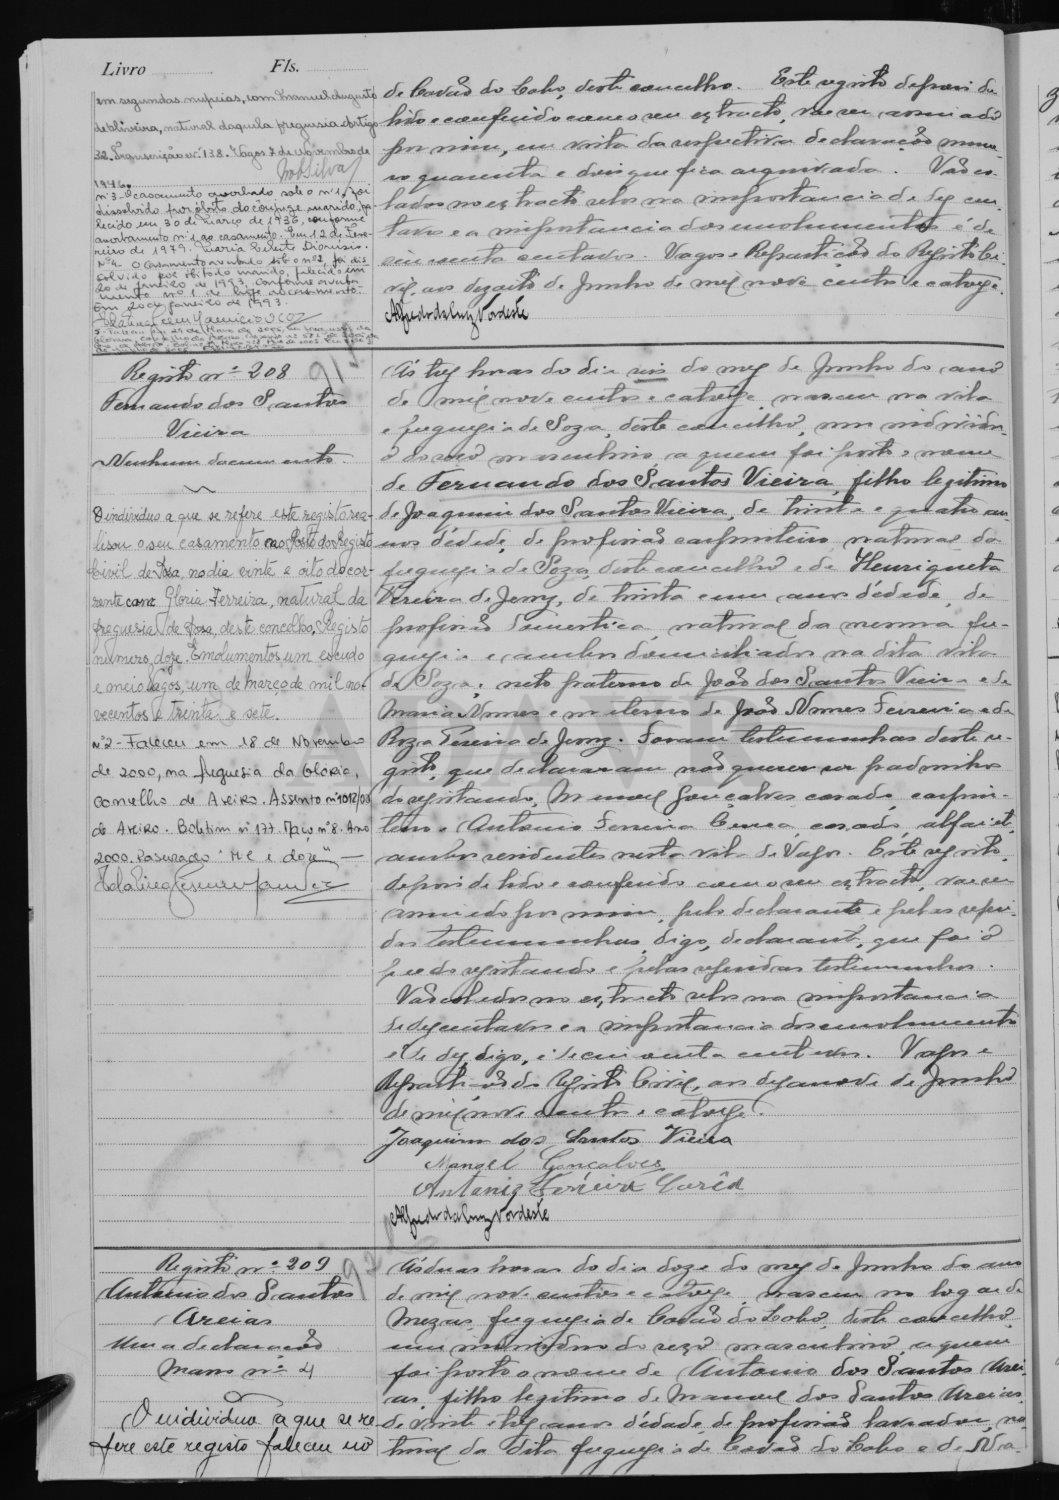 Livro Fls.
em segundas nupcias, com Manuel Augusto
de Oliveira, natural daquela freguesia
32. Transcrição nº 138. Vagos 7 de Novembro de
1946.
nº 3 - O casamento averbado sob o nº 1, foi
dissolvido por óbito do cônjuge marido, fa-
lecido em 30 de Março de 1936, conforme
averbamento nº 1 ao casamento. Em 12 de Feve-
reiro de 1979.
Nº 4. O casamento averbado sob o nº 2, foi dis-
solvido por óbito do marido, falecido em
20 de Janeiro de 1993, conforme averba
mento nº 1 de hoje ao casamento.
Em 20 de Janeiro de 1993.
de Covão do Lobo, deste concelho. Este registo depois de
lido e conferido com o seu extracto, vae ser assinado
por mim, em vista da respectiva declaração nume-
ro quarenta e dois que fica arquivada. Vão co-
lados no extracto selos na importancia de dez cen-
tavos e a importancia dos emolumentos é de
cincoenta centavos. Vagos e Repartição do Registo Ci-
vil, aos dezoito de Junho de mil nove centos e catorze.
Alfredo da Luz Nordeste
Registo nº 208
Fernando dos Santos
Vieira
Nenhum documento
O individuo a que se refere este registo rea-
lisou o seu casamento no Posto do Registo
Civil de Sosa, no dia vinte e oito do cor-
rente com Gloria Ferreira, natural da
freguesia de Sosa, deste concelho, Registo
numero doze. Emolumentos, um escudo
e meio. Vagos, um de março de mil no-
vecentos e trinta e sete.
Nº 2 - Faleceu em 18 de Novembro
de 2000, na freguesia da Glória,
concelho de Aveiro. Assento nº 1012/00
de Aveiro. Boletim nº 177. Maço nº 8. Ano
2000. Rasurado: "Mil e doze" —
Ás tres horas do dia seis do mez de Junho do ano
de mil nove centos e catorze, nasceu na vila
e freguezia de Soza, deste concelho, um individu-
o do sexo masculino, a quem foi posto o nome
de Fernando dos Santos Vieira, filho legitimo
de Joaquim dos Santos Vieira, de trinta e quatro an-
nos d'édade, de profissão carpinteiro, natural da
freguezia de Soza, deste concelho e de Henriqueta
Pereira de Jesus, de trinta e um anos d'édade, de
profissão domestica, natural da mesma fre-
guezia e ambos domiciliados na dita vila
de Soza; neto paterno de João dos Santos Vieira e de
Maria Nunes e materno de João Nunes Ferreira e de
Roza Pereira de Jesus. Foram testemunhas deste re-
gisto, que declararam não querer ser padrinhos
do registando, Manoel Gonçalves, casado, carpin-
teiro e Antonio Ferreira casado, alfaiate,
ambos residentes nesta vila de Vagos. Este registo,
depois de lido e conferido com o seu extracto, vae ser
assinado por mim, pelo declarante e pelas referi-
das testemunhas, digo, declarante, que foi o
pae do registando e pelas referidas testemunhas.
Vão colados no extracto selos na importancia
de dez centavos e a importancia dos emolumentos
é de dez, digo, é de cincoenta centavos. Vagos e
Repartição do Registo Civil, aos dezanove de Junho
de mil nove centos e catorze.
Joaquim dos Santos Vieira
Manoel Gonçalves
Antonio Ferreira
Alfredo da Luz Nordeste
Registo nº 209
Antonio dos Santos
Areias
Uma declaração
Maço nº 4
O individuo a que se re
fere este registo faleceu no
Ás duas horas do dia doze do mez de Junho do ano
de mil nove centos e catorze, nasceu no logar de
Mezas, freguezia de Covão do Lobo, deste concelho,
um individuo do sexo masculino, a quem
foi posto o nome de Antonio dos Santos Arei-
as, filho legitimo de Manoel dos Santos Areias,
de vinte e tres anos d'édade, de profissão lavrador, na-
tural da dita freguezia de Covão do Lobo e de